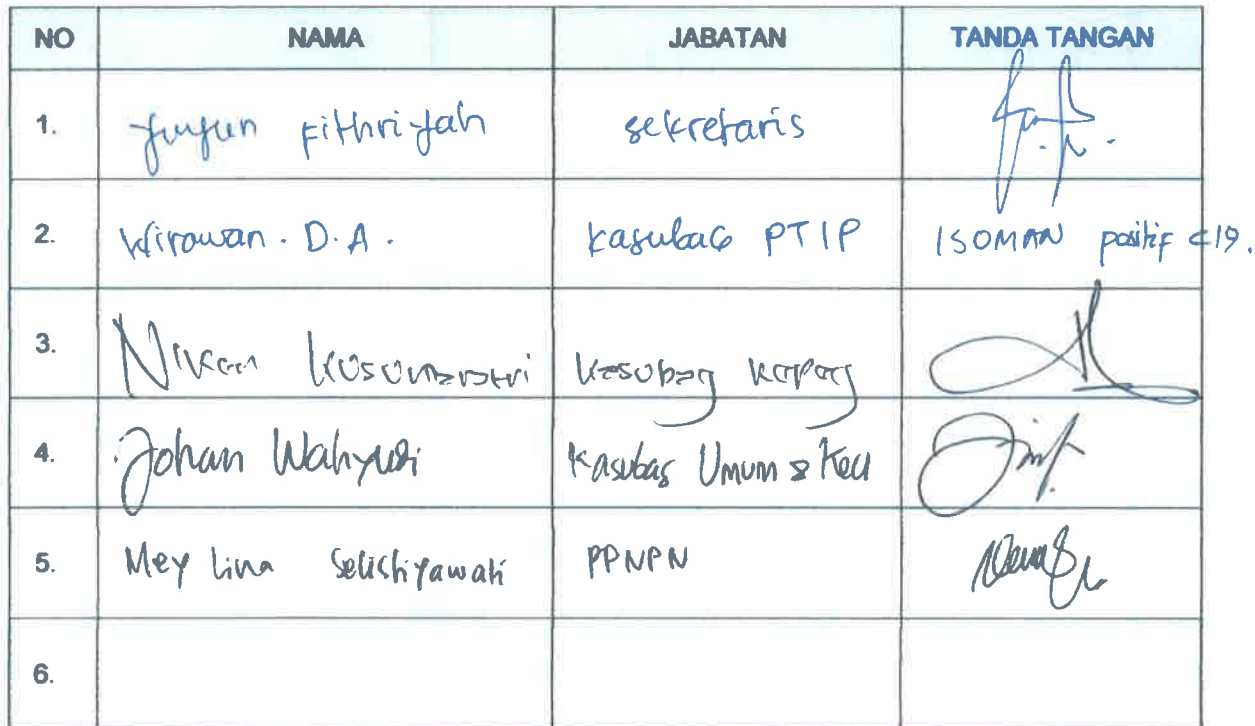 NO NAMA JABATAN TANDA TANGAN
1. Yuyun Fithriyah sekretaris
2. Wirawan . D.A. Kasubag PTIP ISOMAN positif C19.
3. Niken Kusumastri Kasubag Kepeg
4. Johan Wahyudi Kasubag Umum & Keu
5. Mey Lina Selistiyawati PPNPN
6.